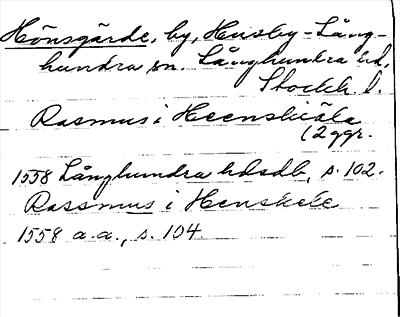 Hönsgärde, by, Husby-Lång-
hundra sn. Långhundra hd,
Stockh l.
Rasmus i Heenskiäla
(2 ggr.
1558 Långhundra hdsdb, s. 102.
Rassmus i Henskele
1558 a.a., s. 104.